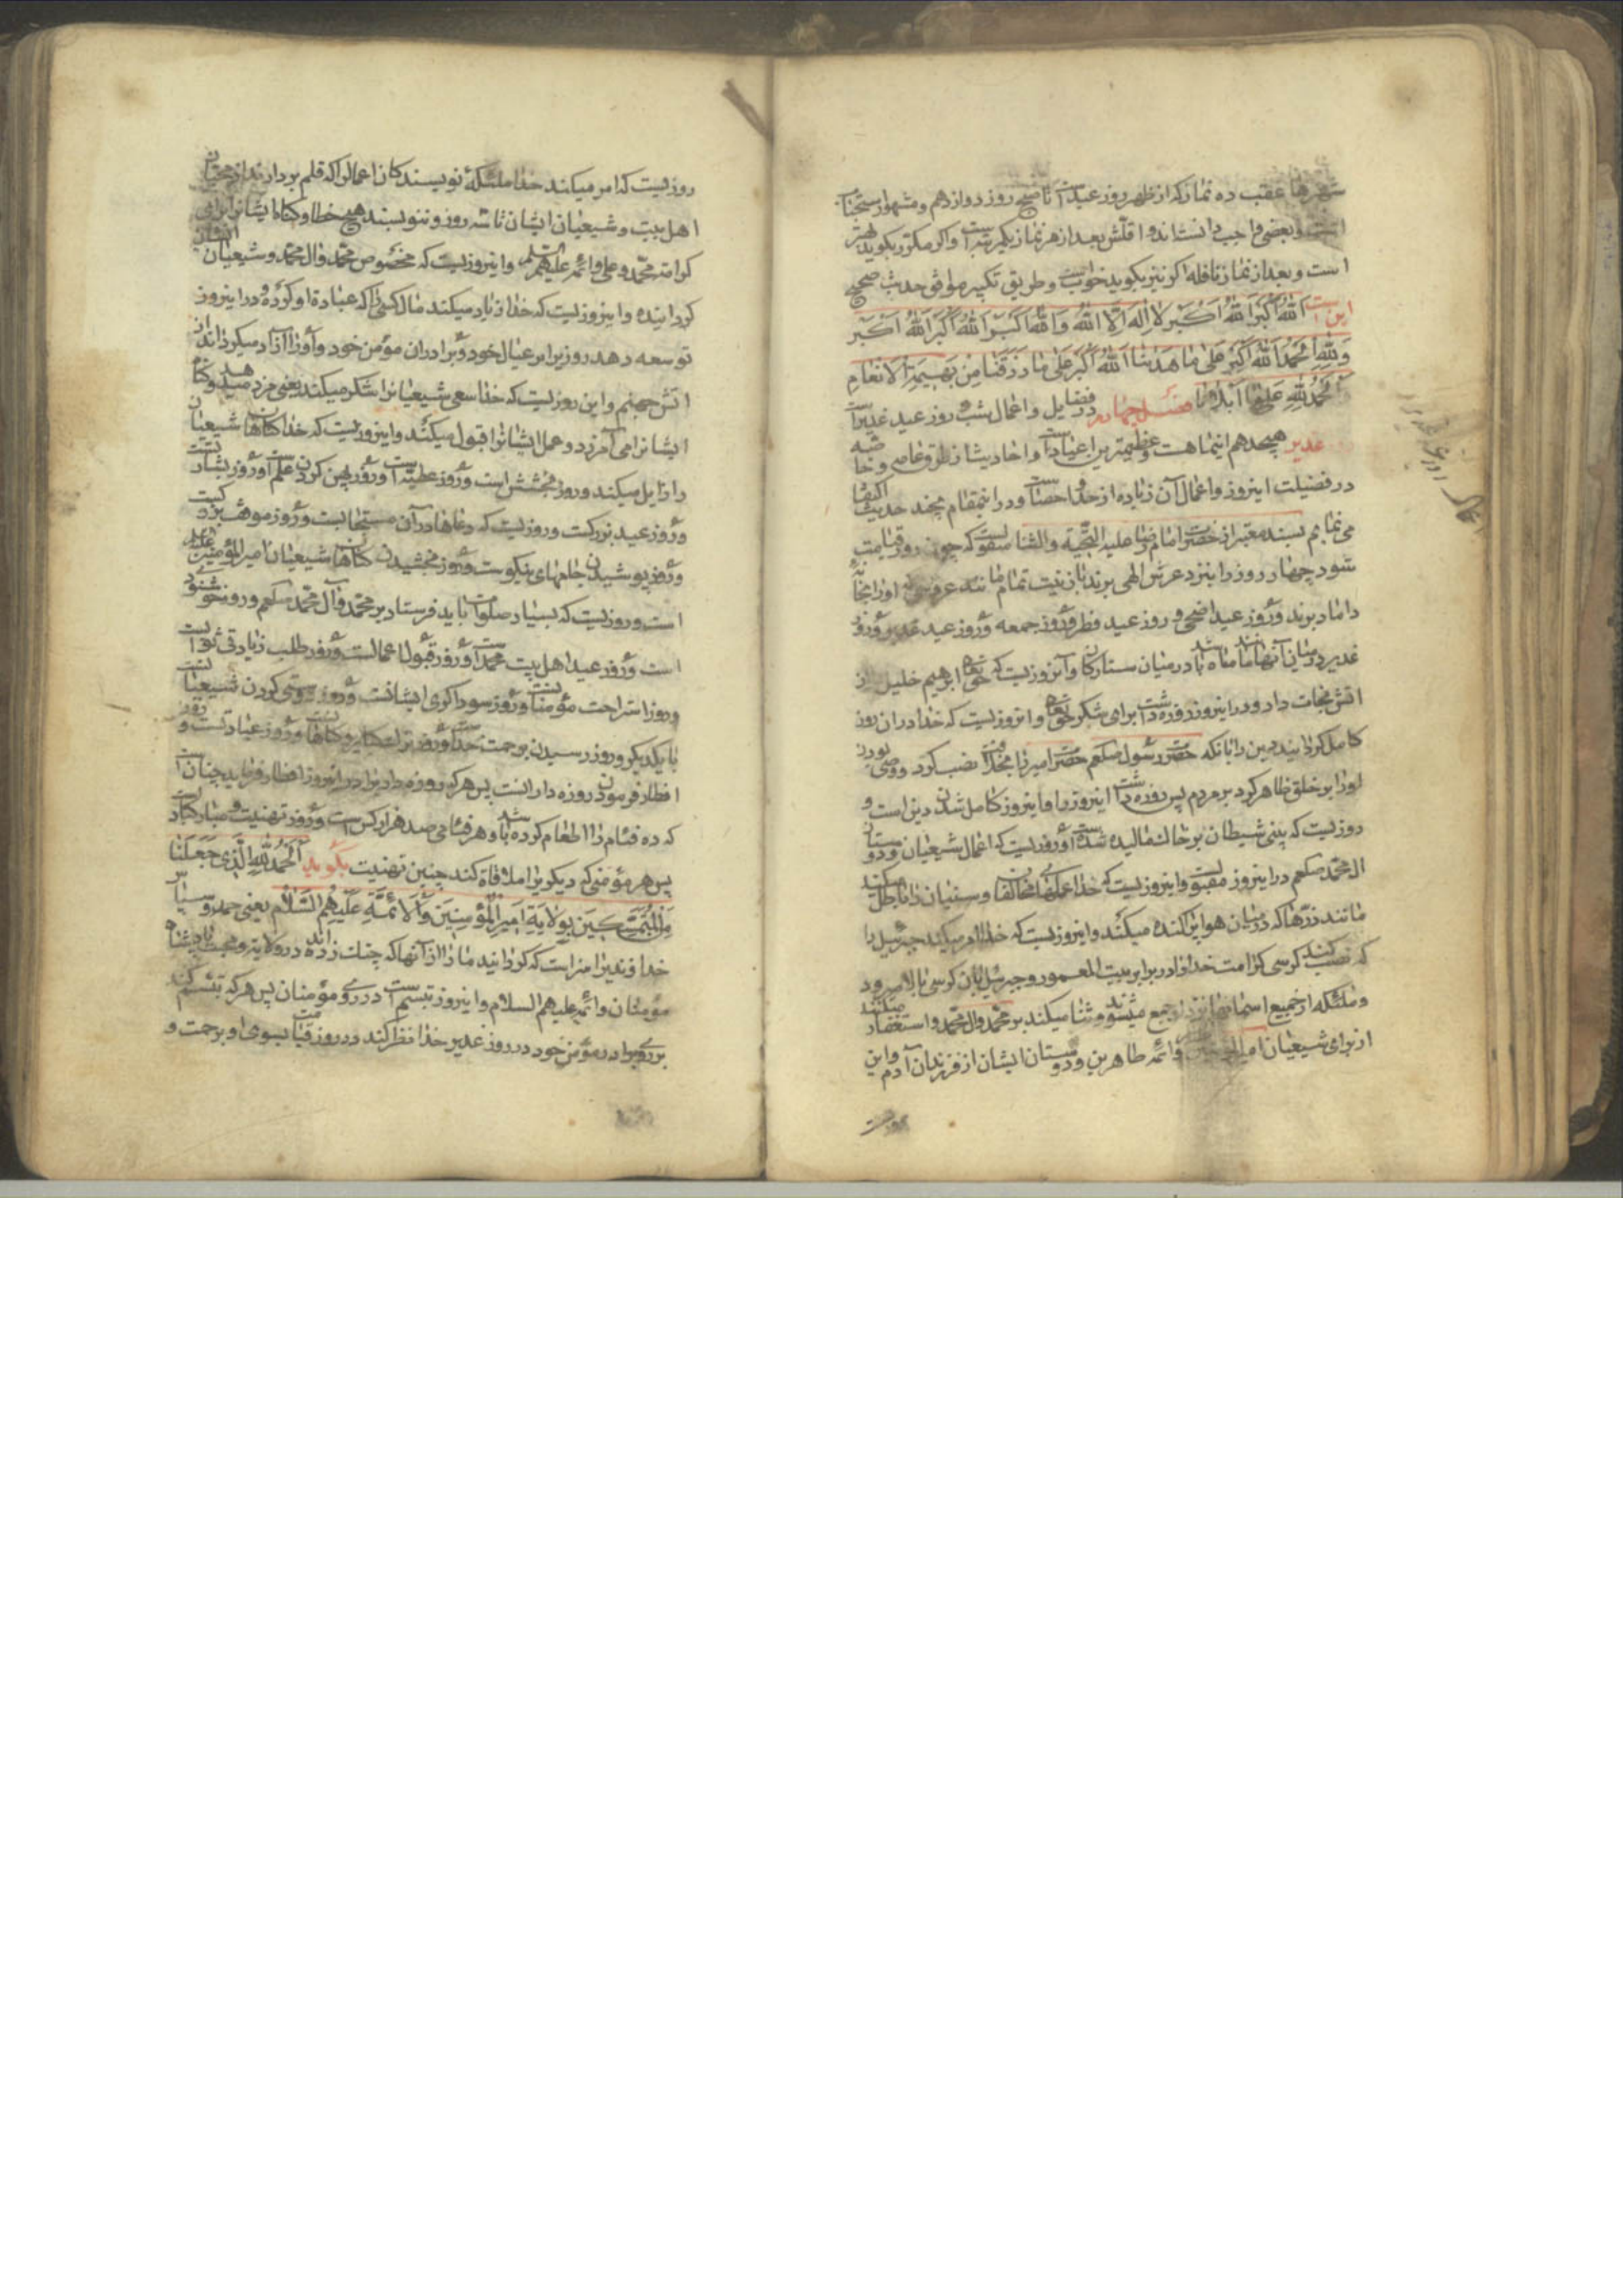 شهرها عقب ده نماز که از ظهر روز عید است تا صبح روز دوازدهم و مشهور استحباب
است و بعضی واجب دانسته‌اند و اقلش بعد از هر نماز یکمرتبه است و اگر مکرر بگوید بهتر
است و بعد از نماز نافله اگر نیز بگوید خوبست و طریق تکبیر موافق حدیث صحیح
این است اَللهُ اَکْبَرُ اَللهُ اَکْبَرُ لا اِلهَ اِلَّا اللهُ وَ اللهُ اَکْبَرُ اَللهُ اَکْبَرُ اَللهُ اَکْبَر
وَلِلّهِ الْحَمْدُ اَللهُ اَکْبَرُ عَلی ما هَدینا اَللهُ اَکْبَرُ عَلی ما رَزَقَنا مِنْ بَهیمَةِ الْاَنْعامِ
اَلْحَمْدُ لِلّهِ عَلی ما اَبْلانا فصل چهارم در فضایل و اعمال شب و روز عید غدیر است
غدیر هیجدهم اینماهست و عظیمترین اعیاد است و احادیث از طرق عامه و خاصه
در فضیلت اینروز و اعمال آن زیاده از حد و احصاست و در اینمقام بچند حدیث اکتفا
می نماییم بسند معتبر از حضرت امام رضا علیه التحیة والثنا منقولست که چون روز قیامت
شود چهار روز را بنزد عرش الهی برند با زینت تمام مانند عروسی که او را بخانه
داماد برند روز عید اضحی و روز عید فطر و روز جمعه و روز عید غدیر و روز
غدیر در میان آنها مانند ماه باشد در میان ستارگان و آنروزیست که حق تعالی ابرهیم خلیل را از
اتش نجات داد و در اینروز روزه داشت برای شکر حق تعالی و انروزیست که خدا در ان روز
کامل گردانید دین را بانکه حضرت رسول صلعم حضرت امیر را بخلافت نصب کرد و وصی بودن
او را بر خلق ظاهر کرد بر مردم پس روزه داشت اینروز را و اینروز کامل شدن دین است و
روزیست که بینی شیطان بر خاک مالیده شده است و روزیست که اعمال شیعیان و دوستان
ال محمد صلعم در اینروز مقبولست و اینروزیست که خدا عملهای مخالفان و سنیان را باطل میکند
مانند ذرها که در میان هوا پراکنده میکند و اینروزیست که خدا امر میکند جبرئیل را
که نصب کند کرسی کرامت خدا را در برابر بیت المعمور و جبرئیل بان کرسی بالا میرود
و ملئکه از جمیع اسمانها نزد او جمع میشوند و ثنا میکنند بر محمد و ال محمد و استغفار میکنند
از برای شیعیان امیر المؤمنین و ائمه طاهرین و دوستان ایشان از فرزندان آدم و این
اعمال روز عید غدیر
روزیست که امر میکند خدا ملئکه نویسندکان اعمال را که قلم بردارند از محبان
اهل بیت و شیعیان ایشان تا سه روز و ننویسند هیچ خطا و کناه ایشان را برای
کرامت محمد و علی و ائمه علیهم السلم و اینروزیست که مخصوص محمد و ال محمد و شیعیان ایشان
کردانیده و اینروزیست که خدا زیاد میکند مال کسی را که عبادت او کرده و در اینروز
توسعه دهد روزی را بر عیال خود و برادران مؤمن خود و او را آزاد میکرداند از
اتش جهنم و این روزیست که خدا سعی شیعیانرا شکر میکند یعنی مزد میدهد و کناه
ایشانرا می آمرزد و عمل ایشانرا قبول میکند و اینروزیست که خدا کناهان شیعیان
را زایل میکند و روز بخشش است و روز عطیه است و روز پهن کردن علم است و روز بشارتست
و روز عید بزرکست و روزیست که دعاها در آن مستجابست و روز موقف بزرکیست
و روز پوشیدن جامهای نیکوست و روز بخشیدن کناهان شیعیان امیر المؤمنین علیه
است و روزیست که بسیار صلوات باید فرستاد بر محمد و آل محمد صلعم و روز خوشنودی
است و روز عید اهل بیت محمد است و روز قبول اعمالست و روز طلب زیادتی ثوابست
و روز استراحت مؤمنانست و روز سوداکری ایشانست و روز دوستی کردن شیعیانست
با یکدیکر و روز رسیدن برحمت خداست و روز ترک کبایر و کناهانست و روز عبادتست و روز
افطار فرمودن روزه دارانست پس هر که روزه داریرا در اینروز افطار فرماید چنانست
که ده فئام را اطعام کرده باشد و هر فئامی صد هزار کس است و روز تهنیت و مبارکبادست
پس هر مؤمنی که دیکریرا ملاقاة کند چنین تهنیت بگوید اَلْحَمْدُ لِلّهِ الَّذی جَعَلَنا
مِنَ الْمُتَمَسِّکینَ بِوِلایَةِ اَمیرِ الْمُؤْمِنینَ وَالْاَئِمَّةِ عَلَیْهِمُ السَّلامُ یعنی حمد و سپاس
خداوندیرا سزاست که کردانید ما را از آنها که چنک زده‌اند در ولایت و محبت پادشاه
مؤمنان و ائمه علیهم السلام و اینروز تبسم است در روی مؤمنان پس هر که تبسم کند
بروی برادر مؤمن خود در روز غدیر خدا نظر کند در روز قیامت بسوی او برحمت و